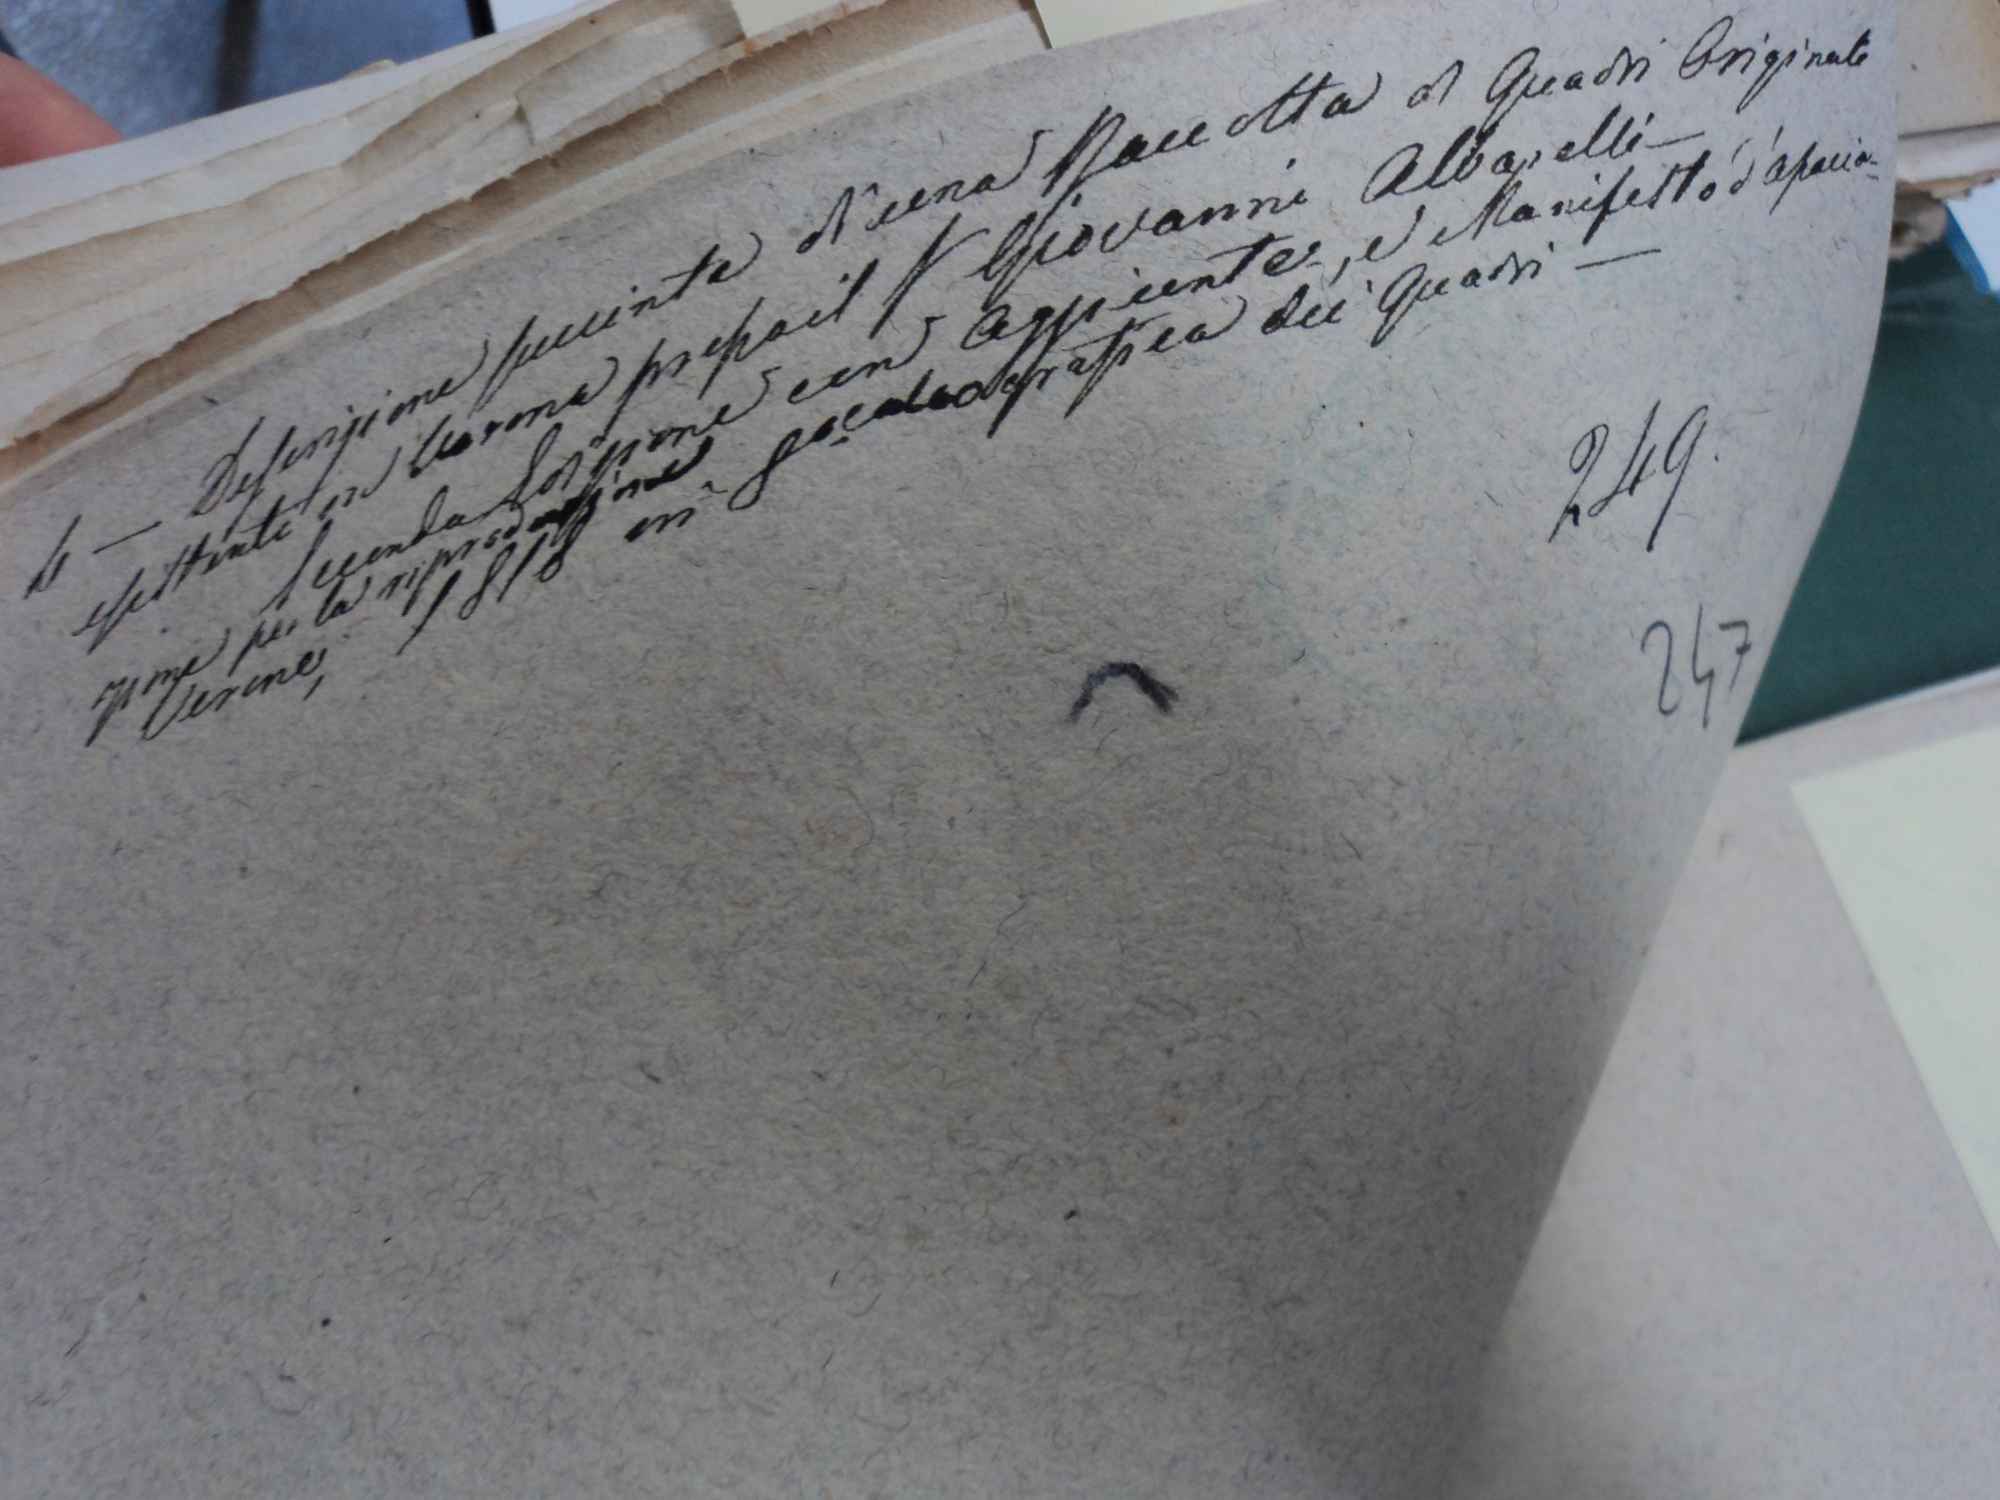 4 — Descrizione succinta di una Raccolta di Quadri Originale
esistente in Verona presso il S.r Giovanni Albarelli —
Seconda Edizione con aggiunte, e Manifesto d'associa-
zione per la riproduzione calcografica dei Quadri —
Verona, 1818 in 8.o
249.
247